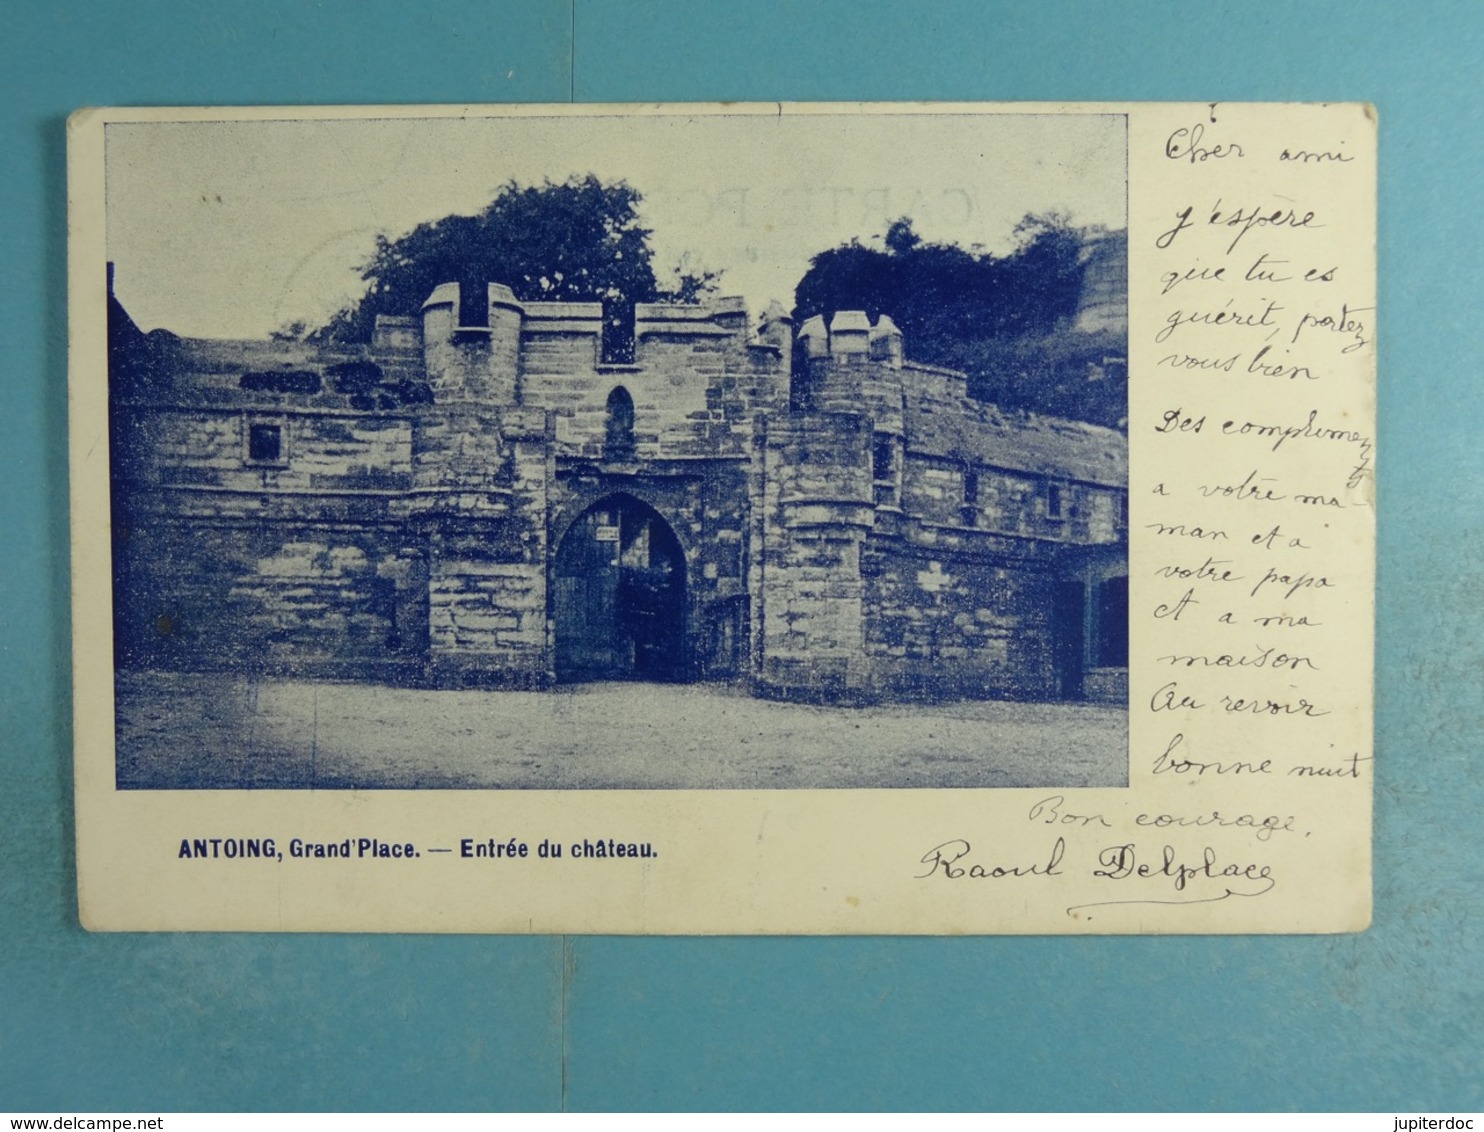 Cher ami
j'espère
que tu es
guérit, portez
vous bien
Des compliments
a votre ma-
man et a
votre papa
et a ma
maison
Au revoir
bonne nuit
Bon courage.
Raoul Delplace
ANTOING, Grand'Place. — Entrée du château.
CARTE PO
delcampe.net
jupiterdoc